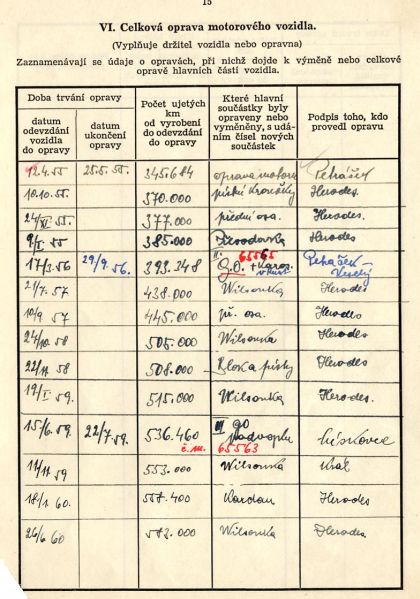 15
VI. Celková oprava motorového vozidla.
(Vyplňuje držitel vozidla nebo opravna)
Zaznamenávají se údaje o opravách, při nichž dojde k výměně nebo celkové
opravě hlavních částí vozidla.
Doba trvání opravy
datum
odevzdání
vozidla
do opravy
datum
ukončení
opravy
Počet ujetých
km
od vyrobení
do odevzdání
do opravy
Které hlavní
součástky byly
opraveny nebo
vyměněny, s udá-
ním čísel nových
součástek
Podpis toho, kdo
provedl opravu
12.4.55 25.5.55. 345.684 oprava motoru
10.10.55. 370.000 Herodes.
377.000 přední osa. Herodes.
385.000 Převodovka Herodes
17/3.56 29/9.56. 393.348 G.O. 65565
21/7.57 438.000 Wilsonka Herodes
10/9 57 445.000 př. osa. Herodes
24/10.58 505.000 Wilsonka Herodes
22/11 58 508.000 Blok a písty Herodes
19/I 59. 515.000 Wilsonka Herodes.
15/6.59. 22/7.59. 536.460 III GO podvozku
č.m. 65563
11/11 59 553.000 Wilsonka Král
18/1 60. 558.400 Kardan Herodes
26/6 60 583.000 Wilsonka Herodes